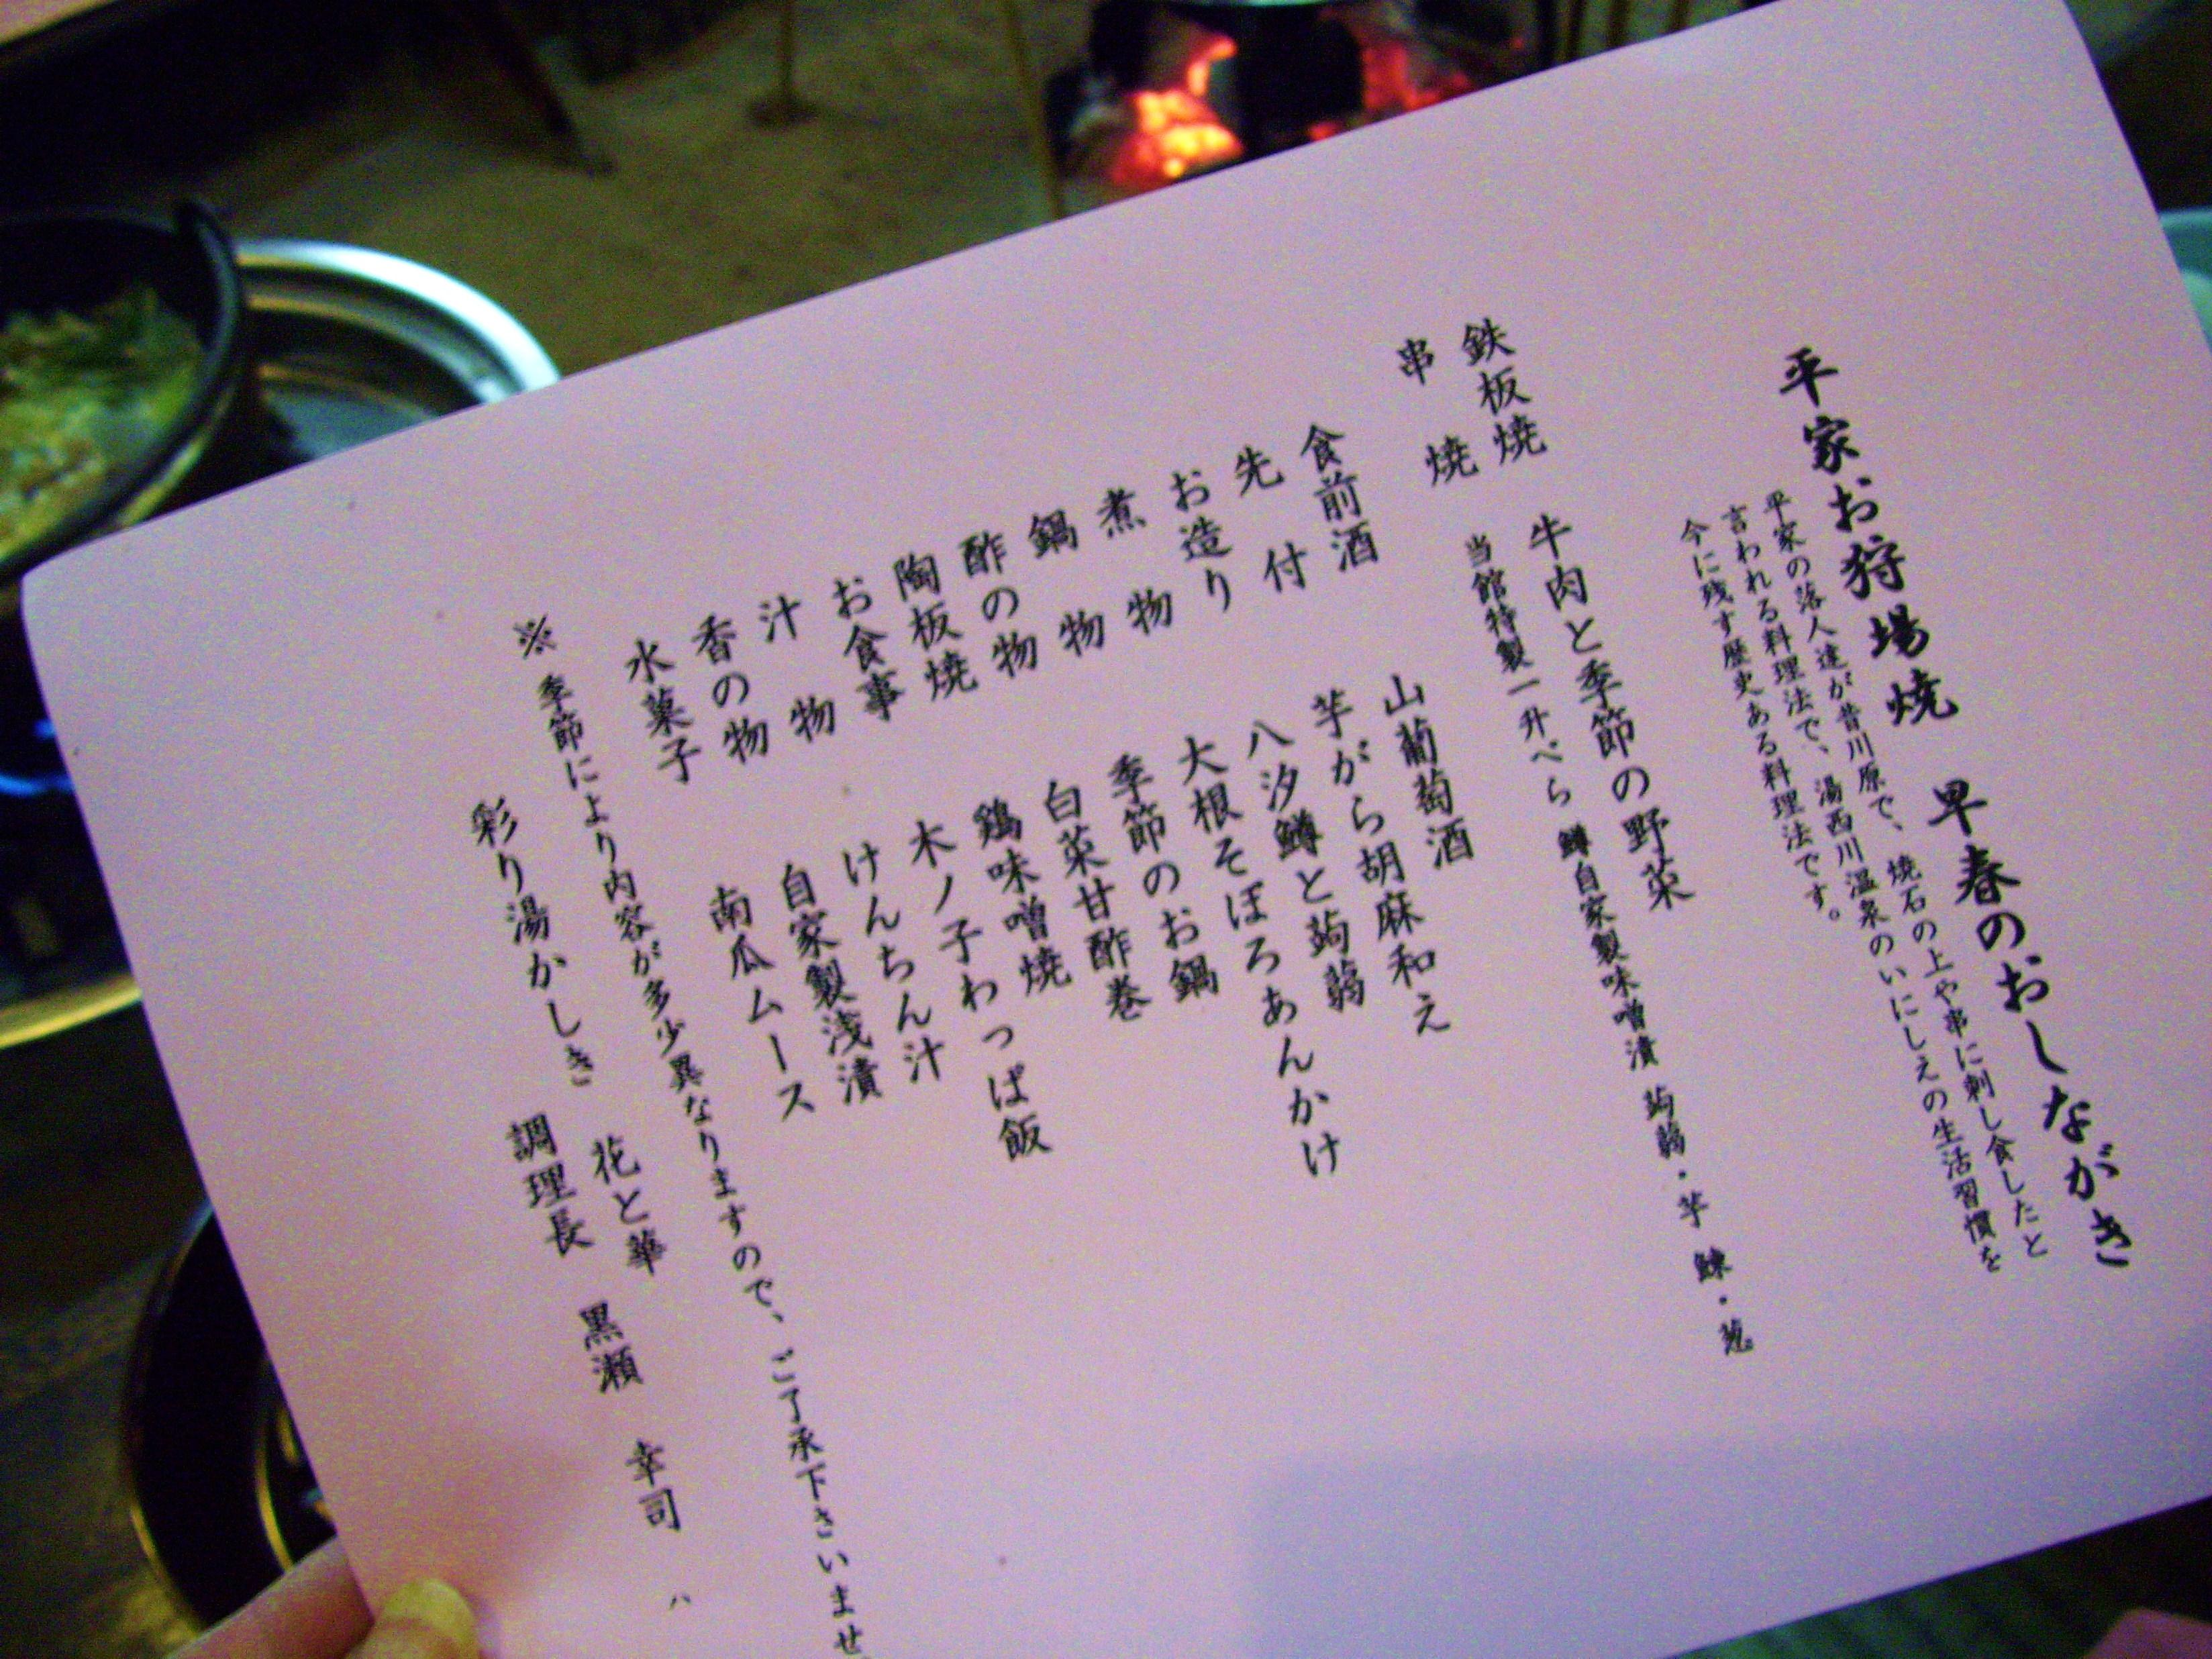 平家お狩場焼 早春のおしながき
平家の落人達が昔川原で、焼石の上や串に刺し食したと
言われる料理法で、湯西川温泉のいにしえの生活習慣を
今に残す歴史ある料理法です。
鉄板焼 牛肉と季節の野菜
串焼 当館特製一升べら 鱒自家製味噌漬 蒟蒻・芋 鰊・葱
食前酒 山葡萄酒
先付 芋がら胡麻和え
お造り 八汐鱒と蒟蒻
煮物 大根そぼろあんかけ
鍋物 季節のお鍋
酢の物 白菜甘酢巻
陶板焼 鶏味噌焼
お食事 木ノ子わっぱ飯
汁物 けんちん汁
香の物 自家製浅漬
水菓子 南瓜ムース
※季節により内容が多少異なりますので、ご了承下さいませ
彩り湯かしき 花と華
調理長 黒瀬 幸司 ハ